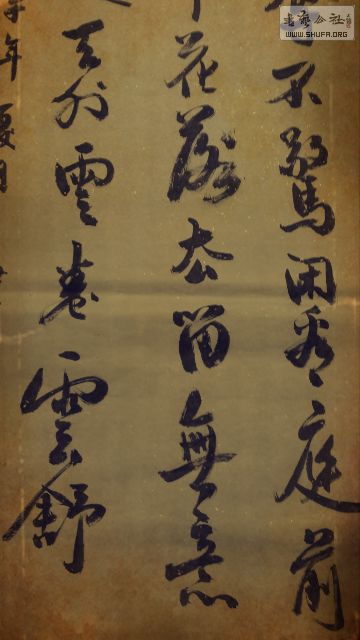 書藝公社
WWW.SHUFA.ORG
不驚閑看庭前
花落去留無意
天外雲卷雲舒
年夏月